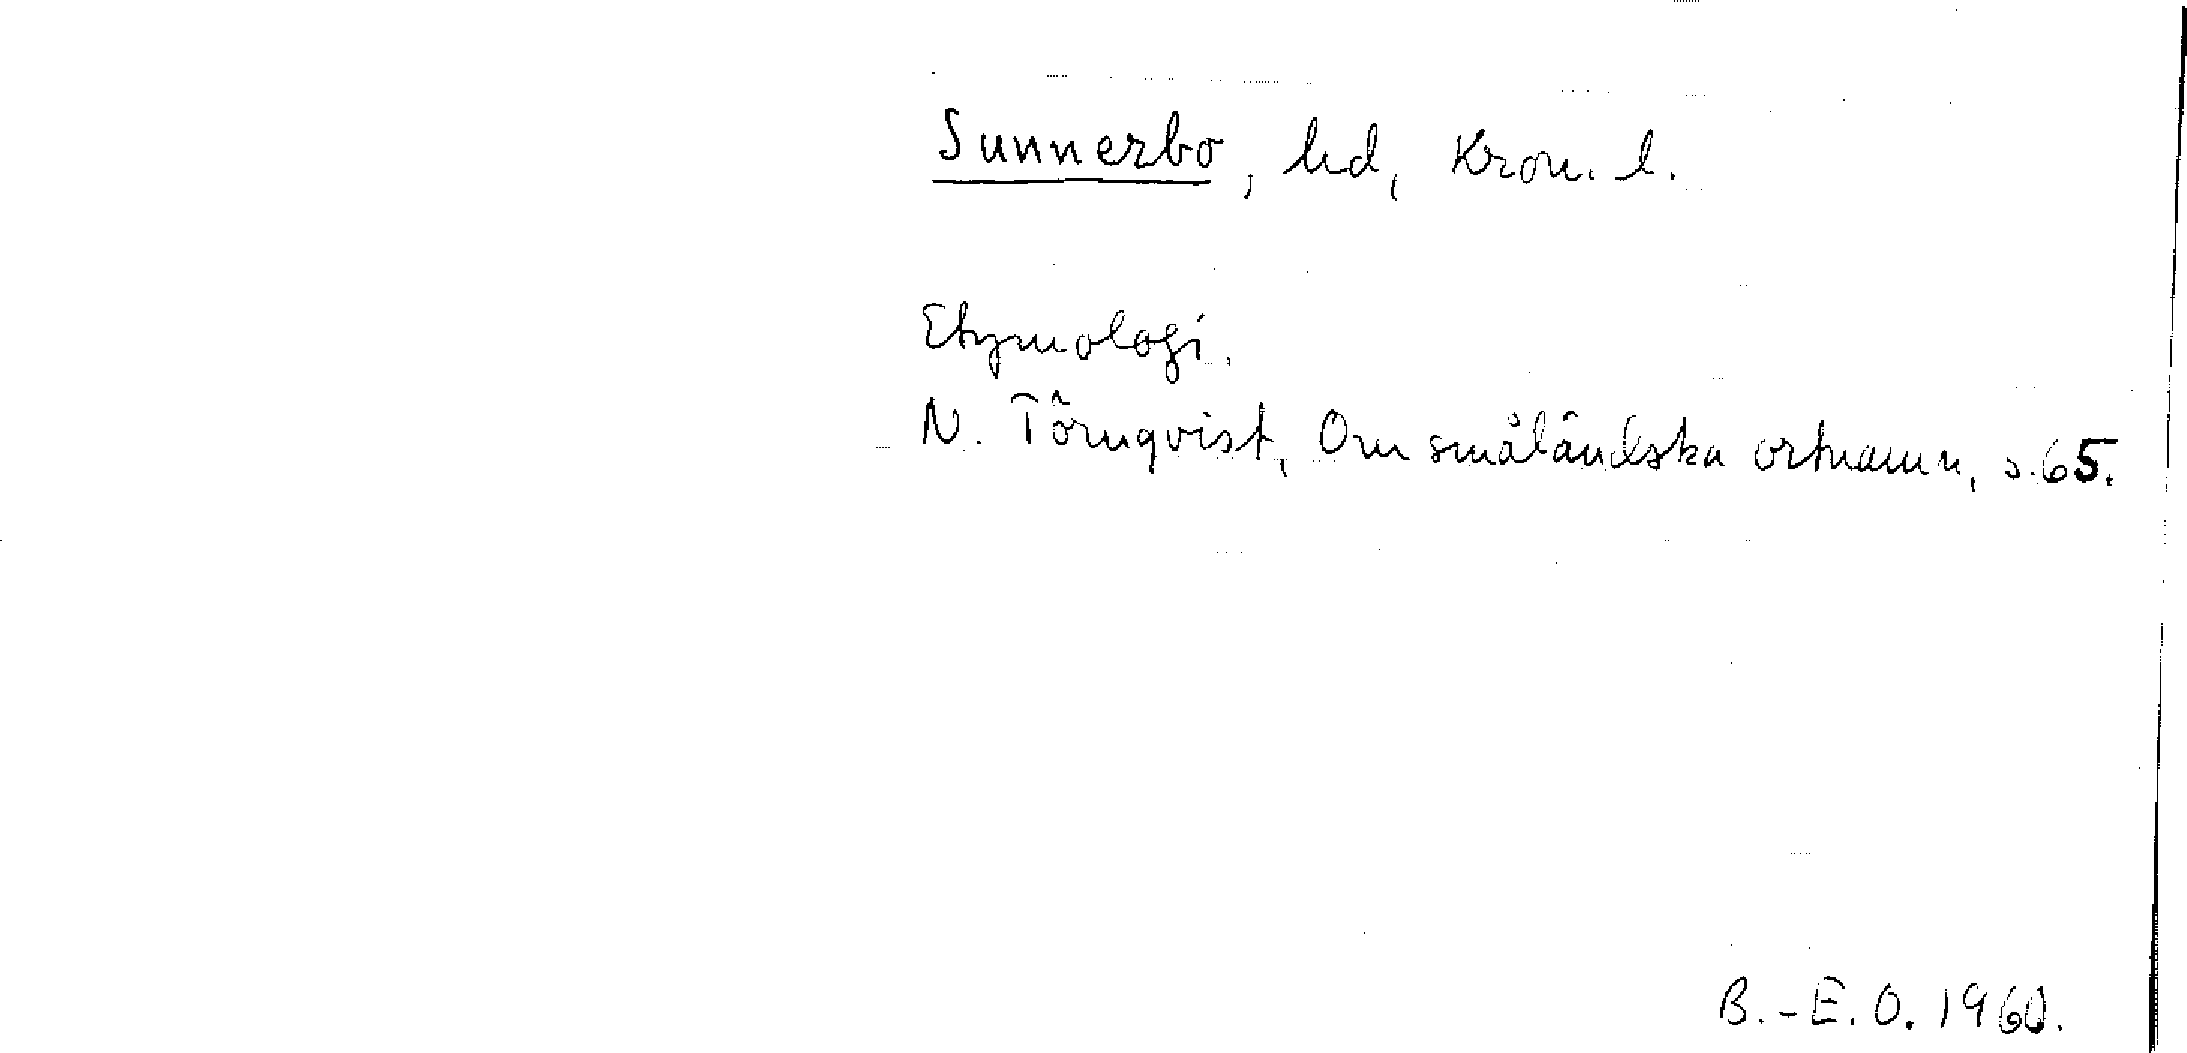 Sunnerbo, hd, Kron. l.
Etymologi.
N. Törnqvist, Om småländska ortnamn, s. 65.
B.-E.O. 1960.